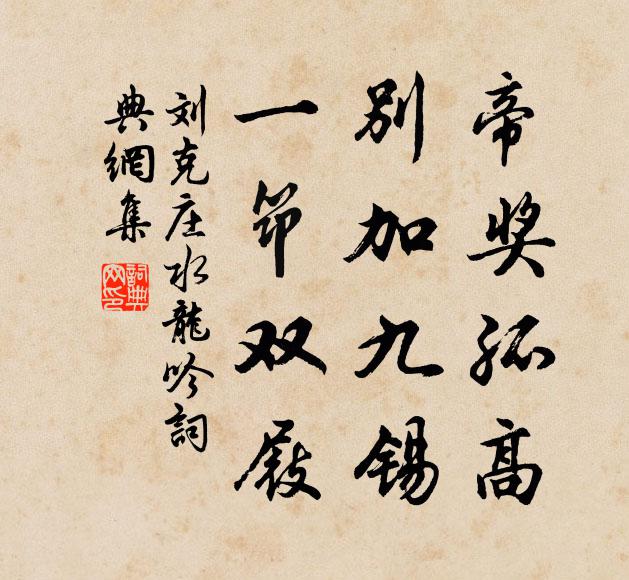 帝奖孤高
别加九锡
一筇双屐
刘克庄水龍吟詞
典網集
詞典网印